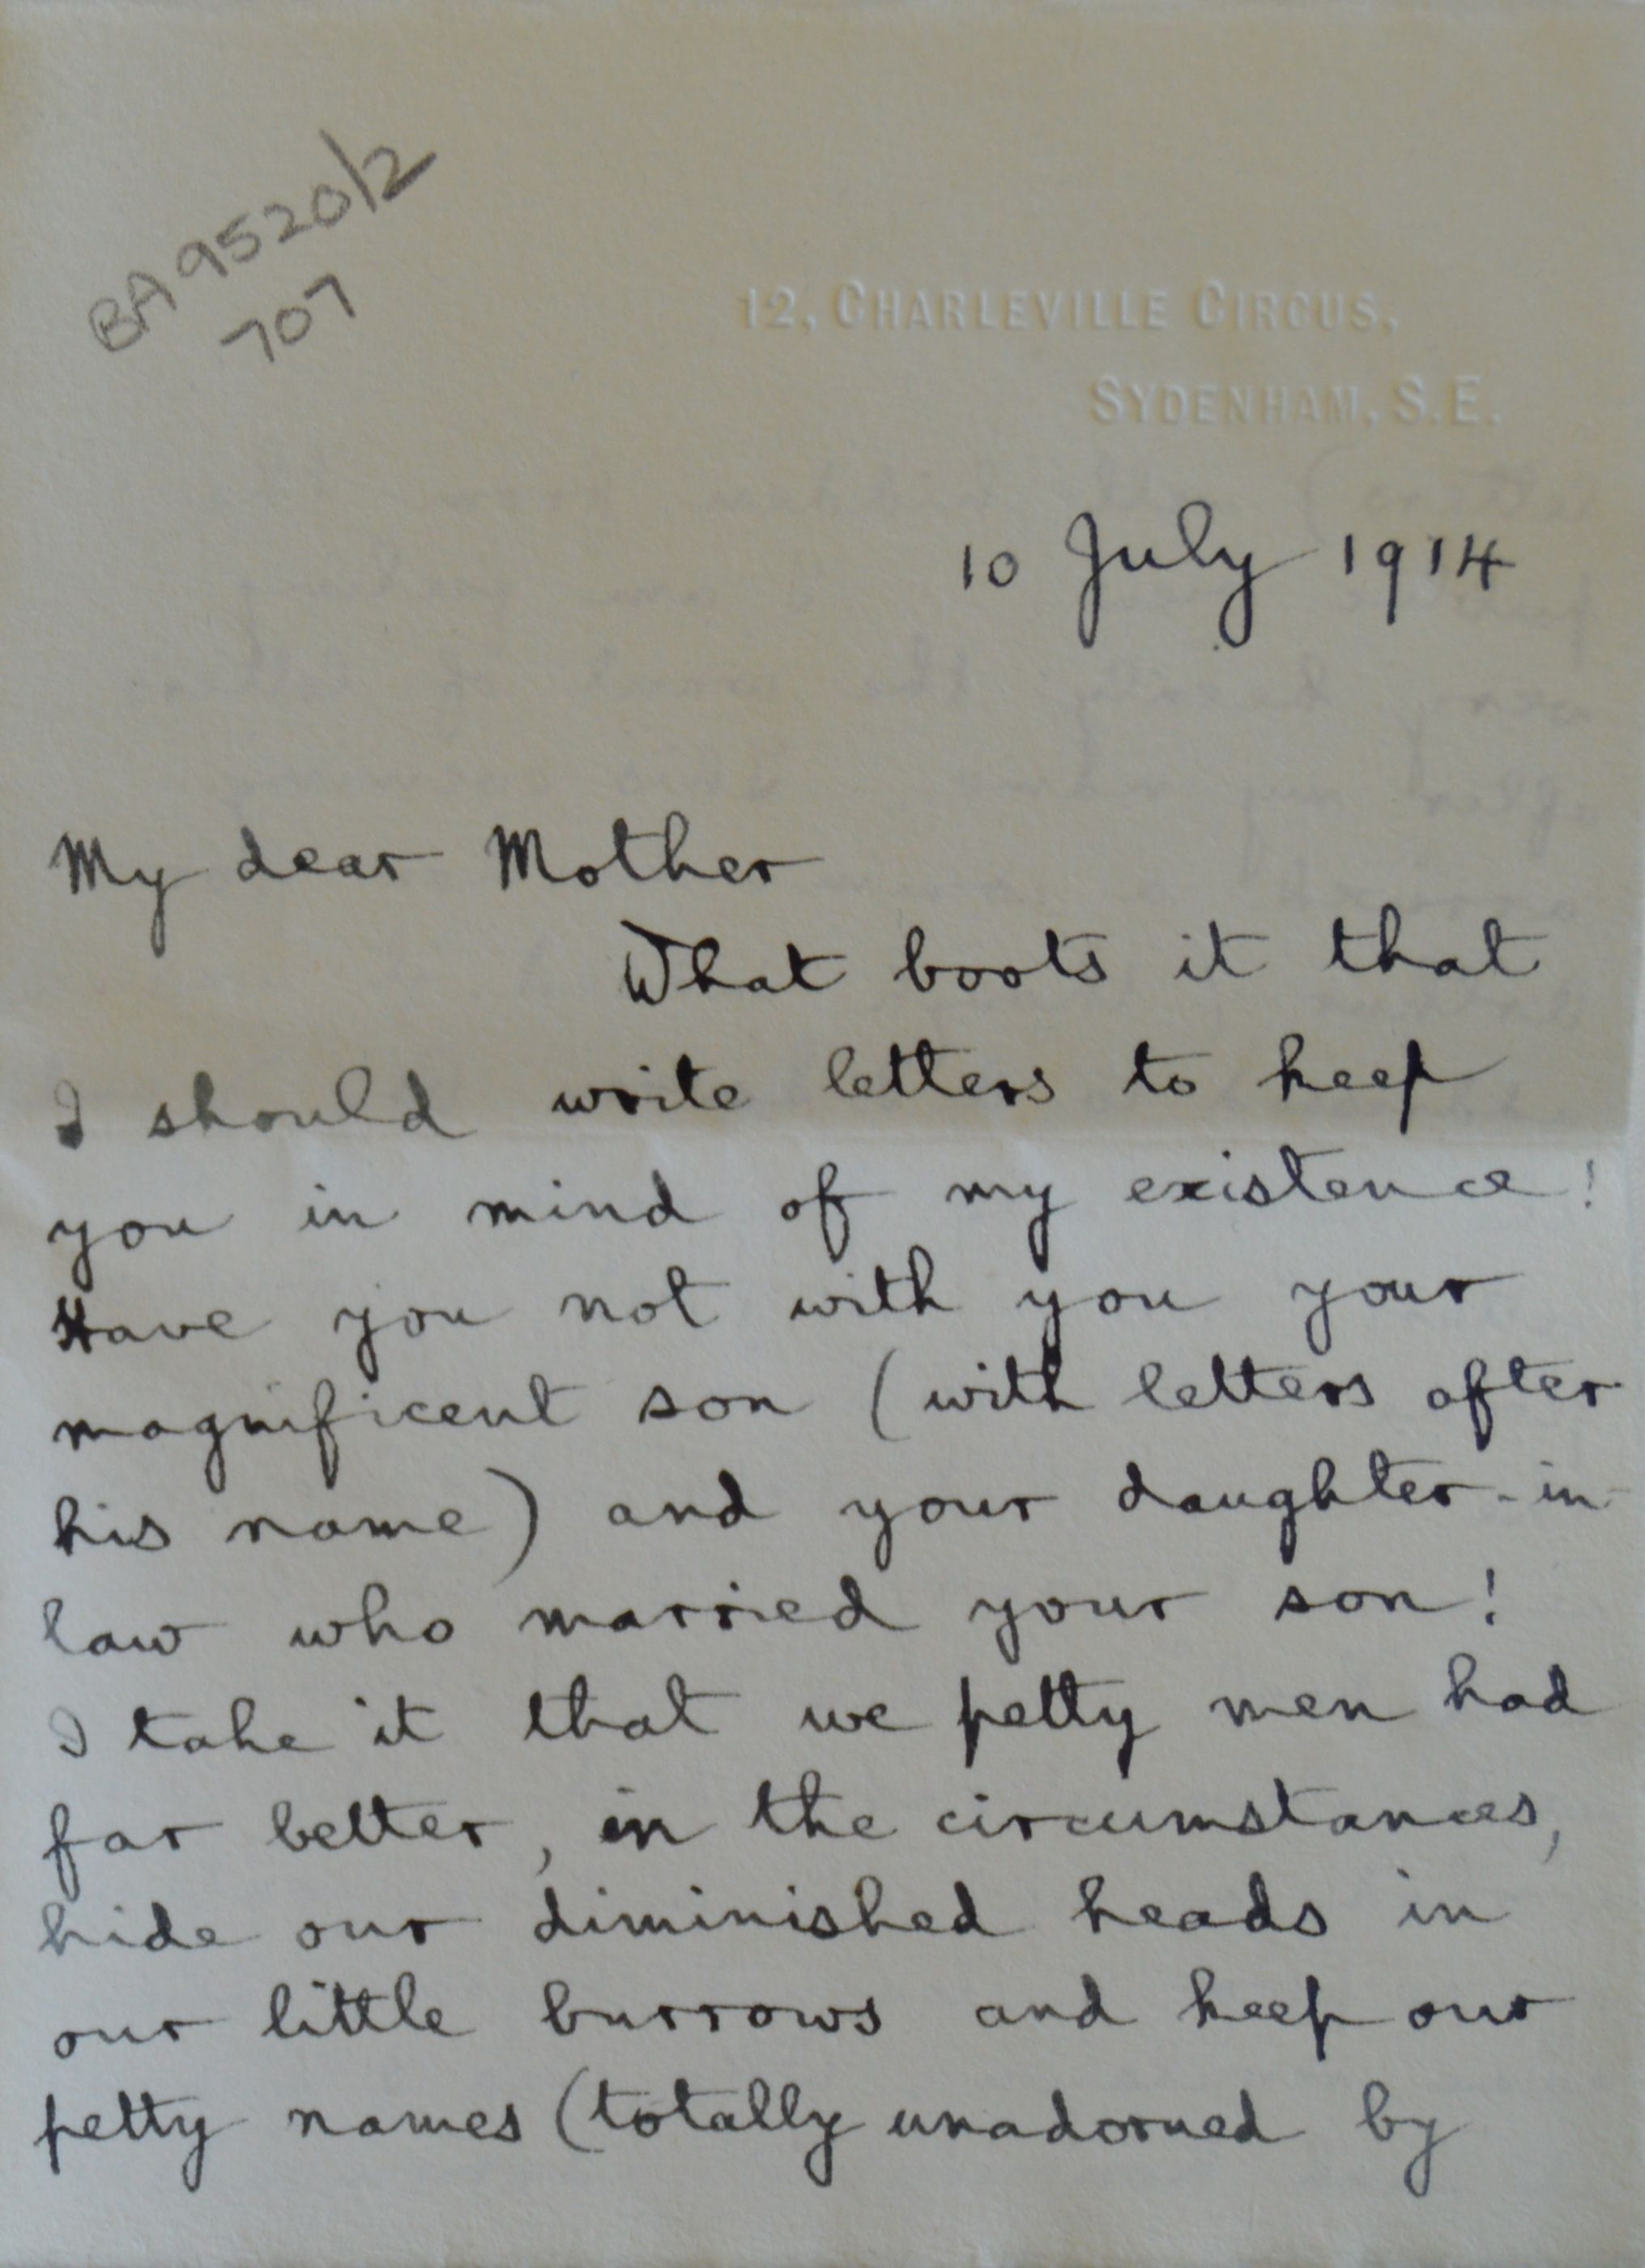 BA9520/2
707
12, CHARLEVILLE CIRCUS,
SYDENHAM, S.E.
10 July 1914
My dear Mother
What boots it that
I should write letters to keep
you in mind of my existence!
Have you not with you your
magnificent son (with letters after
his name) and your daughter-in-
law who married your son!
I take it that we petty men had
far better, in the circumstances,
hide our diminished heads in
our little burrows and keep our
petty names (totally unadorned by